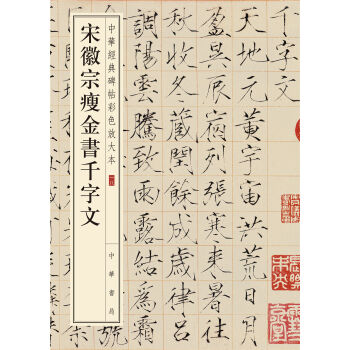 千字文
天地元黃宇宙洪荒日月
盈昃辰宿列張寒來暑往
秋收冬藏閏餘成歲律呂
調陽雲騰致雨露結爲霜
中華經典碑帖彩色放大本
宋徽宗瘦金書千字文
中華書局